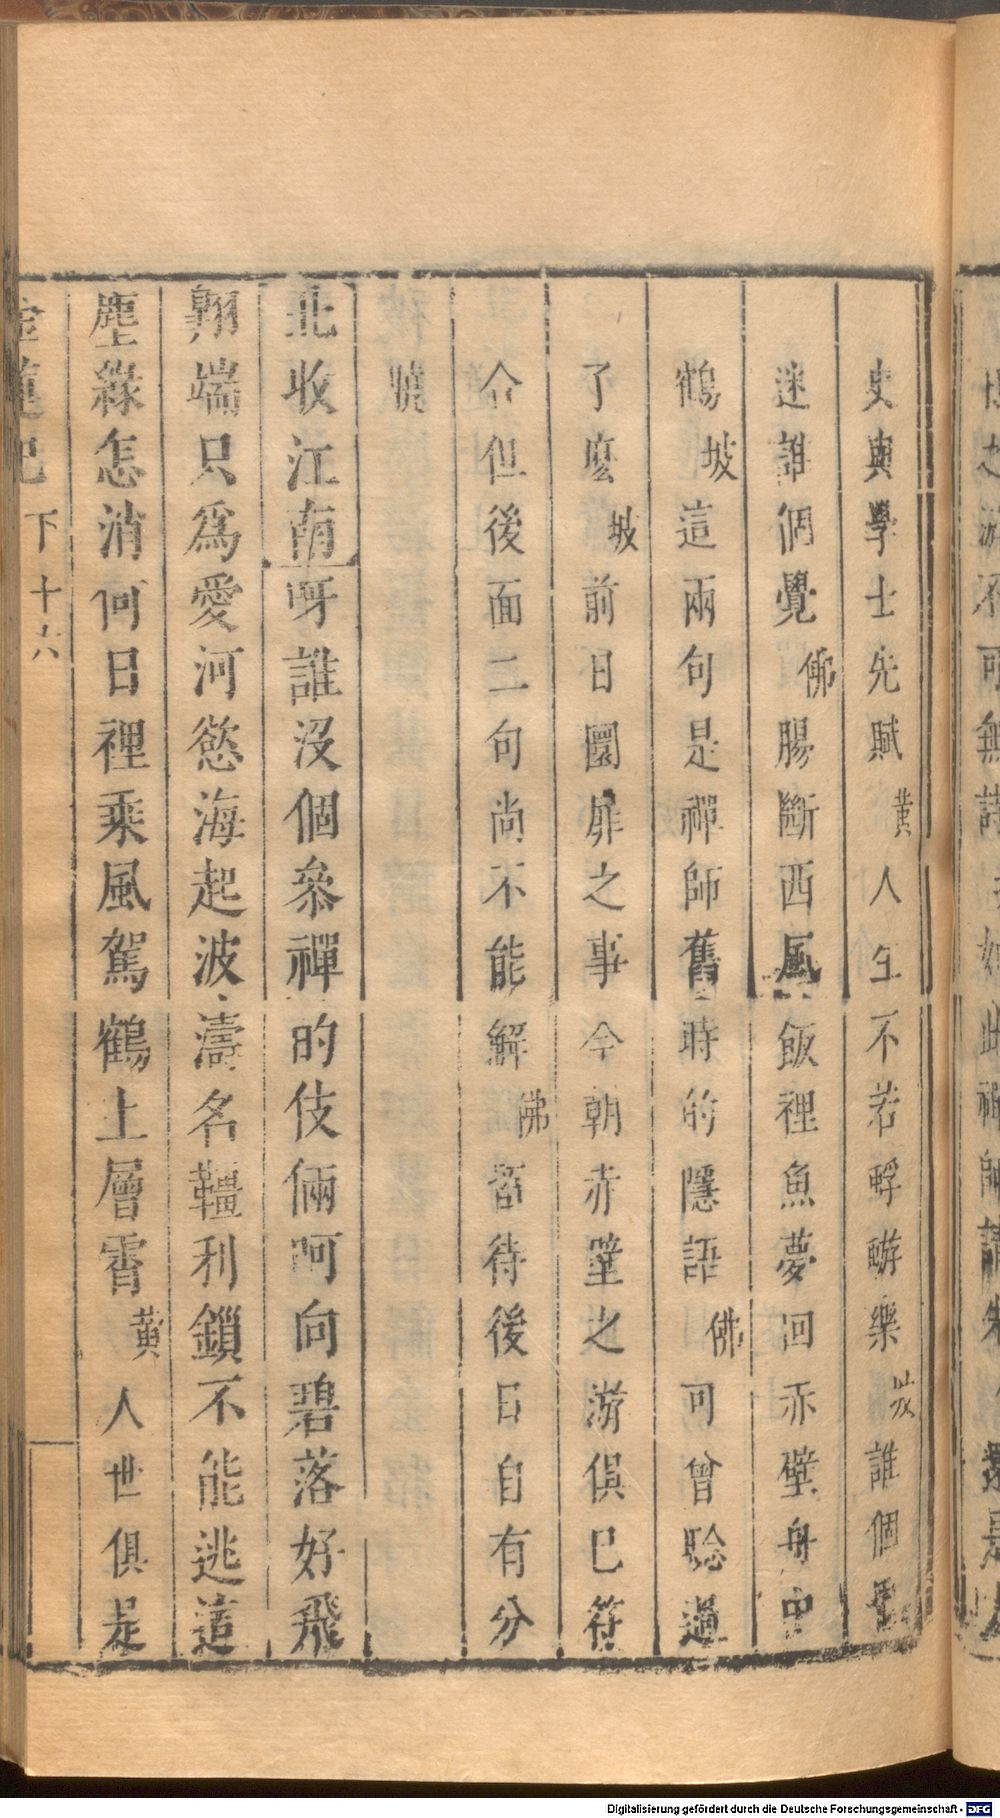 史與學士先賦黃人生不若醉遊樂坡誰個
迷誰個覺佛腸斷西風飯裡魚夢回赤壁舟中
鶴坡這兩句是禪師舊時的隱語佛可曾聽過
了麼坡前日圜扉之事今朝赤壁之游俱已符
合但後面二句尚不能解佛習待後日自有分
曉
北收江南呀誰沒個參禪的伎倆呵向碧落好飛
翔端只為愛河慾海起波濤名韁利鎖不能逃這
塵緣怎消何日裡乘風駕鶴上層霄黃人世俱是
下 十六
Digitalisierung gefördert durch die Deutsche Forschungsgemeinschaft - DFG